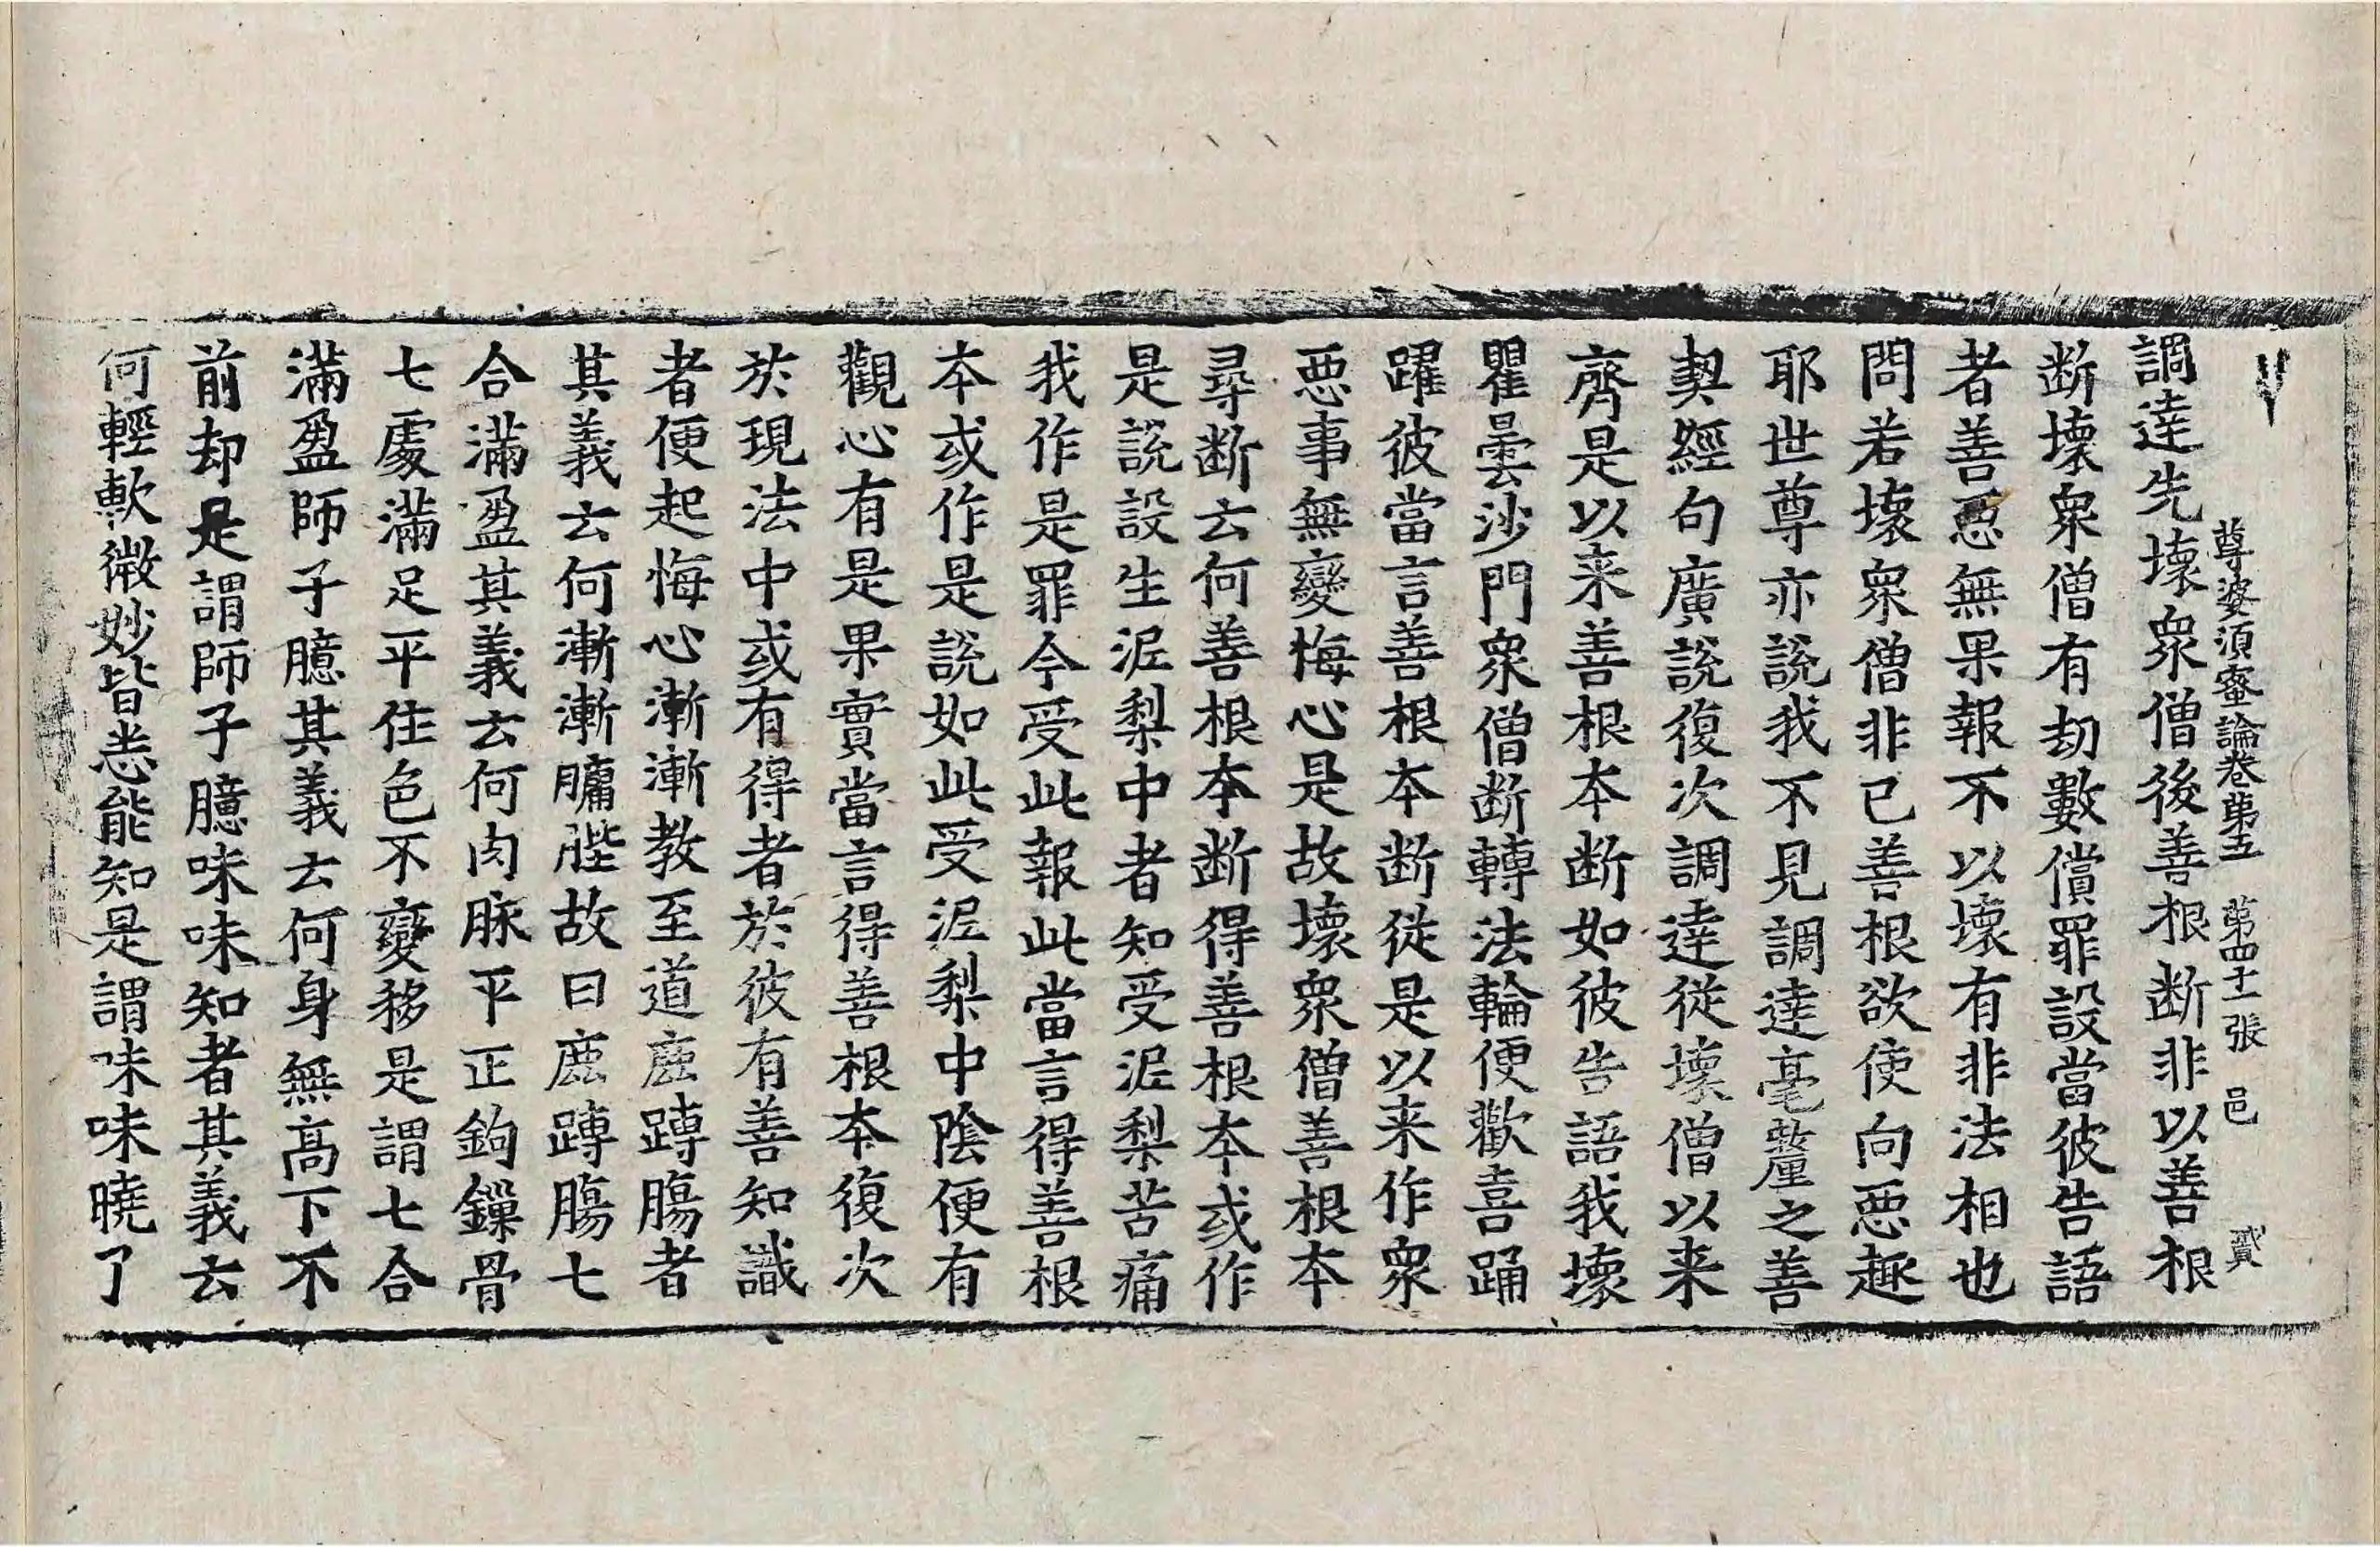 尊婆須蜜論卷第五 第四十一張 邑 貳
調達先壞衆僧後善根断非以善根
断壞衆僧有劫數償罪設當彼告語
者善惡無果報不以壞有非法相也
問若壞衆僧非已善根欲使向惡趣
耶世尊亦說我不見調達毫釐之善
契經句廣說復次調達從壞僧以来
齊是以来善根本断如彼告語我壞
瞿曇沙門衆僧断轉法輪便歡喜踊
躍彼當言善根本断從是以来作衆
惡事無變悔心是故壞衆僧善根本
尋断云何善根本断得善根本或作
是說設生泥梨中者知受泥梨苦痛
我作是罪今受此報此當言得善根
本或作是說如此受泥梨中陰便有
觀心有是果實當言得善根本復次
於現法中或有得者於彼有善知識
者便起悔心漸漸教至道鹿䏝腸者
其義云何漸漸𦟛䏶故曰鹿䏝腸七
合滿盈其義云何肉脉平正鉤鏁骨
七處滿足平住色不變移是謂七合
滿盈師子臆其義云何身無高下不
前却是謂師子臆味味知者其義云
何輕軟微妙皆悉能知是謂味味曉了